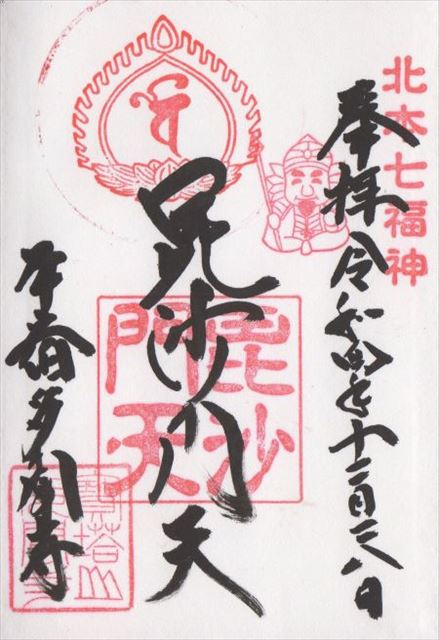 北本七福神
奉拝 令和四年十二月二八日
毘沙門天
毘沙
門天
本宿多聞寺
寶塔山